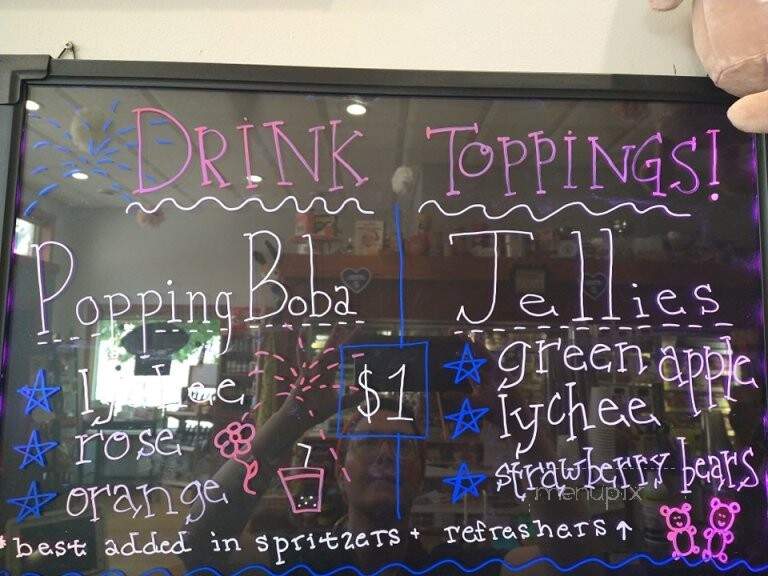 DRINK TOPPINGS!
Popping Boba
lychee
rose
orange
$1
Jellies
green apple
lychee
strawberry bears
*best added in spritzers + refreshers ↑
menupix